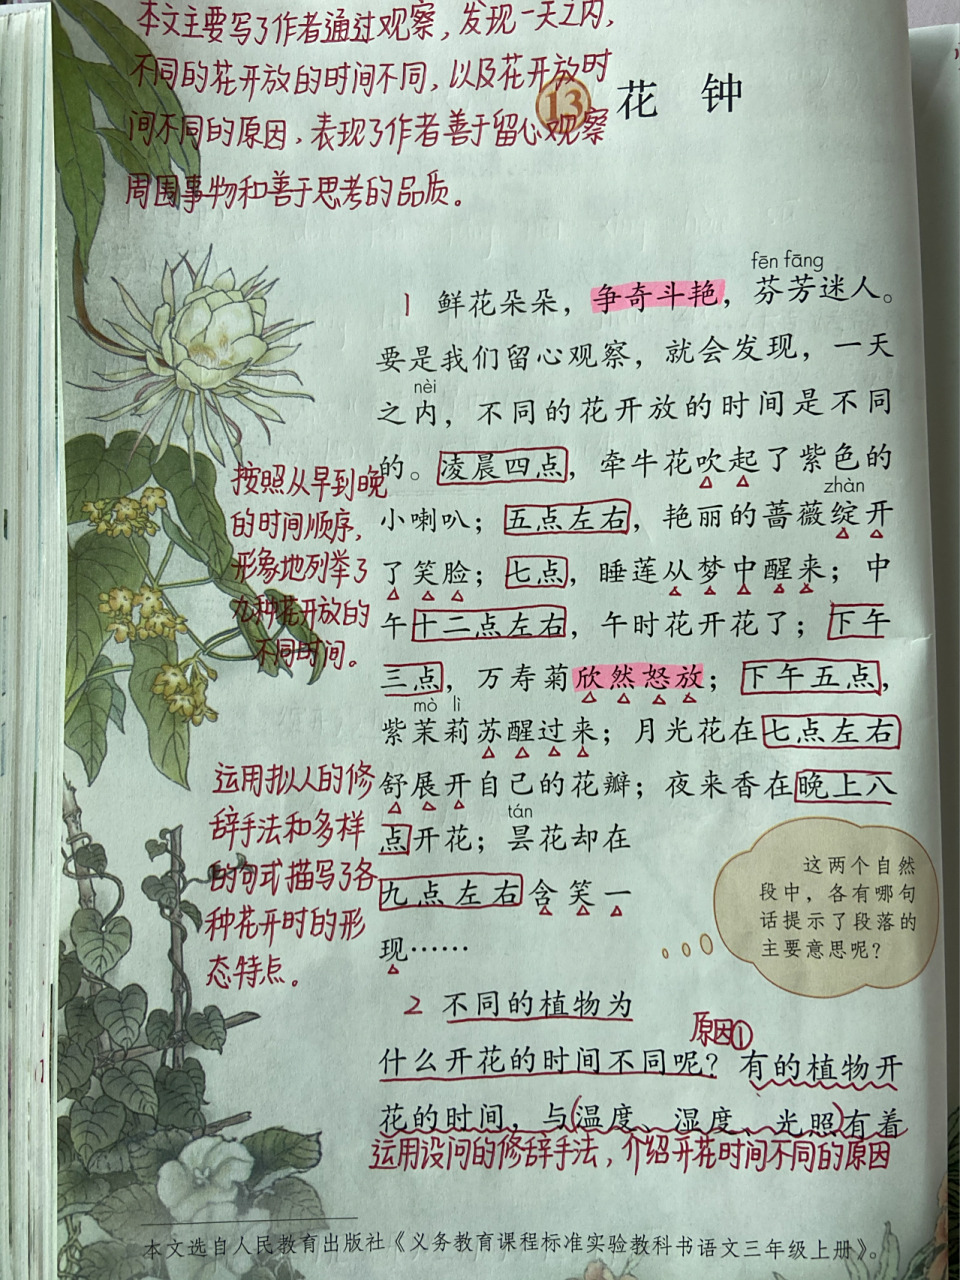 本文主要写了作者通过观察，发现一天之内，
不同的花开放的时间不同，以及花开放时
间不同的原因，表现了作者善于留心观察
周围事物和善于思考的品质。
13 花 钟
fēn fāng
1 鲜花朵朵，争奇斗艳，芬芳迷人。
要是我们留心观察，就会发现，一天
nèi
之内，不同的花开放的时间是不同
的。凌晨四点，牵牛花吹起了紫色的
zhàn
小喇叭；五点左右，艳丽的蔷薇绽开
了笑脸；七点，睡莲从梦中醒来；中
午十二点左右，午时花开花了；下午
三点，万寿菊欣然怒放；下午五点，
mò lì
紫茉莉苏醒过来；月光花在七点左右
舒展开自己的花瓣；夜来香在晚上八
tán
点开花；昙花却在
九点左右含笑一
现……
按照从早到晚
的时间顺序，
形象地列举了
九种花开放的
不同时间。
运用拟人的修
辞手法和多样
的句式描写了各
种花开时的形
态特点。
这两个自然
段中，各有哪句
话提示了段落的
主要意思呢？
2 不同的植物为
原因①
什么开花的时间不同呢？有的植物开
花的时间，与(温度、湿度、光照)有着
运用设问的修辞手法，介绍开花时间不同的原因
本文选自人民教育出版社《义务教育课程标准实验教科书语文三年级上册》。